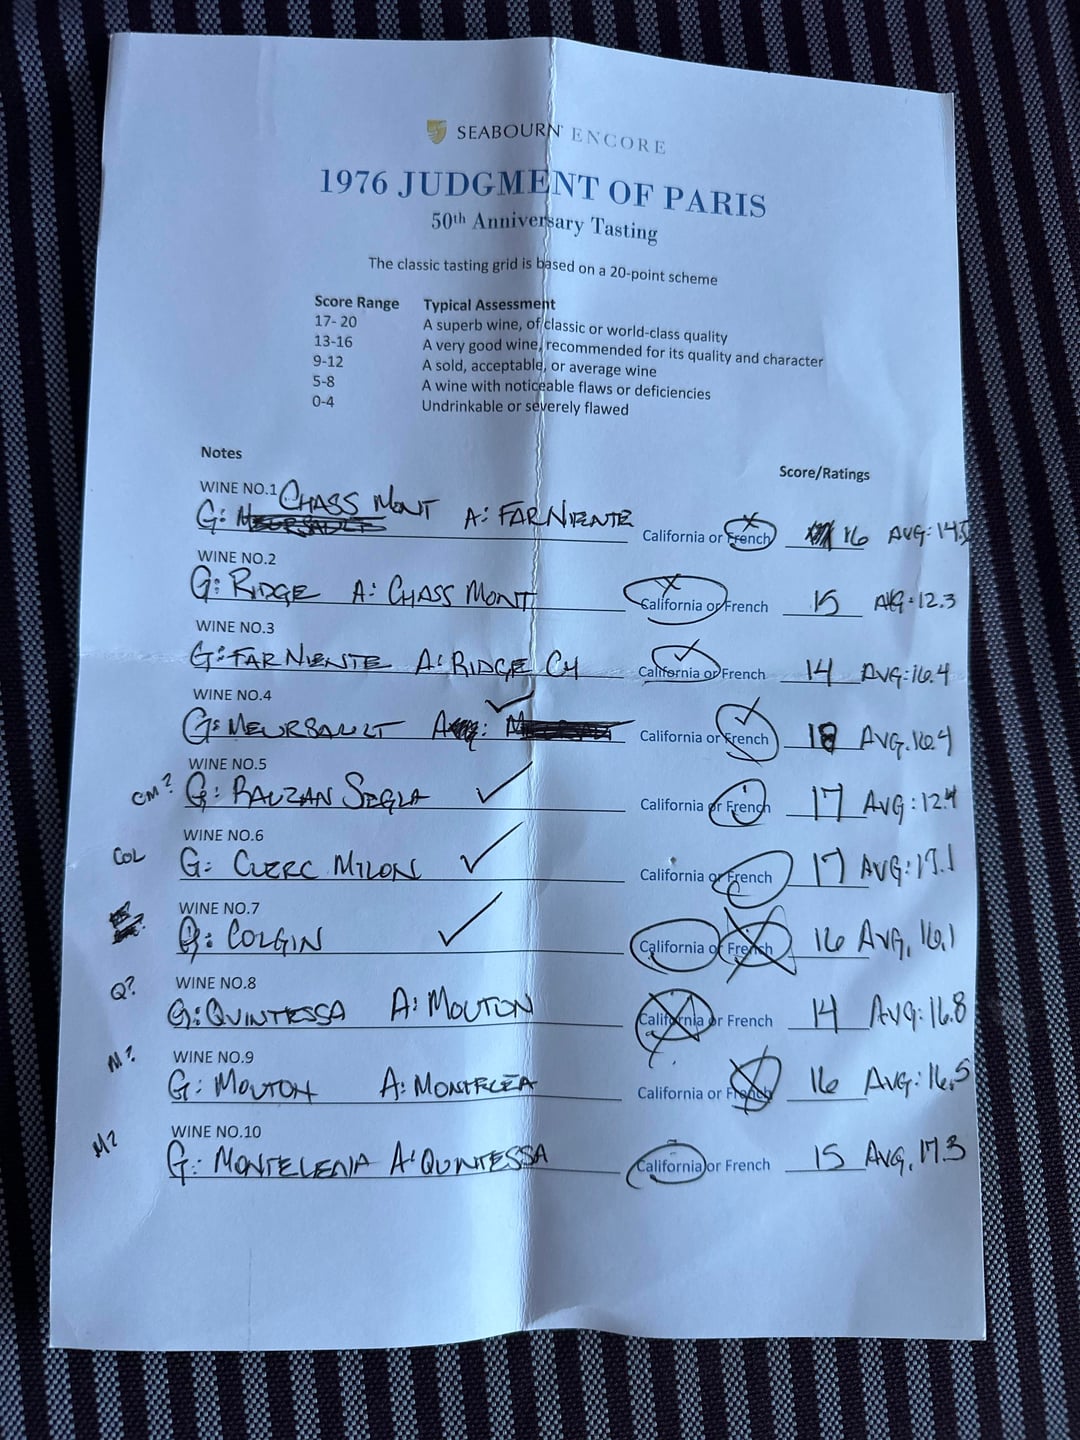 SEABOURN ENCORE
1976 JUDGMENT OF PARIS
50th Anniversary Tasting
The classic tasting grid is based on a 20-point scheme
Score Range Typical Assessment
17- 20 A superb wine, of classic or world-class quality
13-16 A very good wine, recommended for its quality and character
9-12 A sold, acceptable, or average wine
5-8 A wine with noticeable flaws or deficiencies
0-4 Undrinkable or severely flawed
Notes Score/Ratings
WINE NO.1 CHASS MONT
G: MEURSAULT A: FAR NIENTE California or French 16 AVG: 14.5
WINE NO.2
G: RIDGE A: CHASS MONT California or French 15 AVG: 12.3
WINE NO.3
G: FAR NIENTE A: RIDGE CH California or French 14 AVG: 16.4
WINE NO.4
G: MEURSAULT California or French 18 AVG. 16.4
WINE NO.5
CM? G: RAUZAN SEGLA California or French 17 AVG: 12.4
WINE NO.6
COL G: CLERC MILON California or French 17 AVG: 17.1
WINE NO.7
G: COLGIN California or French 16 AVG, 16.1
WINE NO.8
Q? G: QUINTESSA A: MOUTON California or French 14 AVG: 16.8
WINE NO.9
M? G: MOUTON A: MONTELEA California or French 16 AVG: 16.5
WINE NO.10
M? G: MONTELENA A: QUINTESSA California or French 15 AVG. 17.3